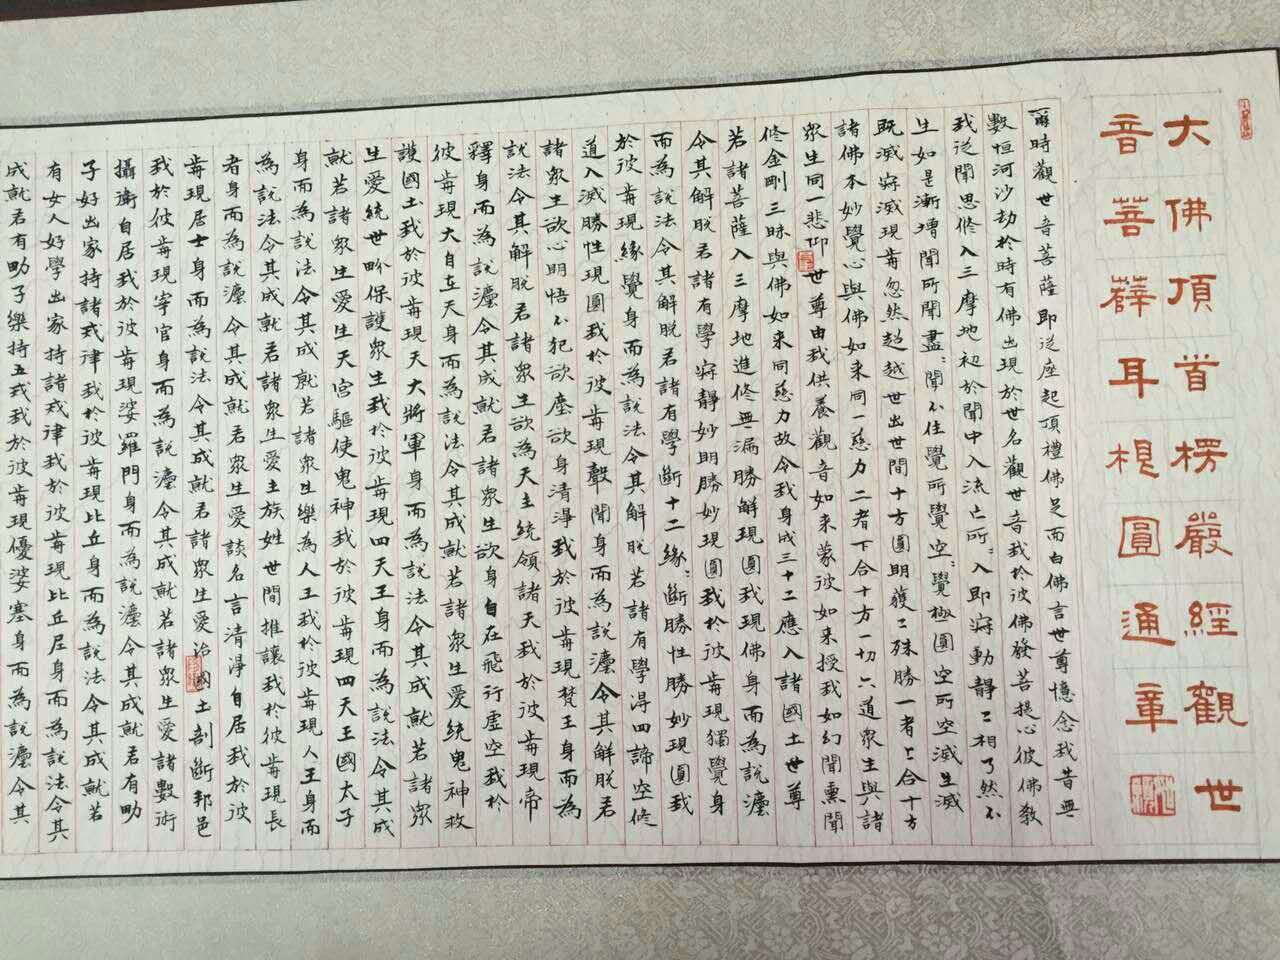 大佛頂首楞嚴經觀世
音菩薩耳根圓通章
爾時觀世音菩薩即從座起頂禮佛足而白佛言世尊憶念我昔無
數恒河沙劫於時有佛出現於世名觀世音我於彼佛發菩提心彼佛教
我從聞思修入三摩地初於聞中入流亡所〻入即寂動靜二相了然不
生如是漸增聞所聞盡〻聞不住覺所覺空〻覺極圓空所空滅生滅
既滅寂滅現前忽然超越世出世間十方圓明獲二殊勝一者上合十方
諸佛本妙覺心與佛如來同一慈力二者下合十方一切六道眾生與諸
眾生同一悲仰世尊由我供養觀音如來蒙彼如來授我如幻聞熏聞
修金剛三昧與佛如來同慈力故令我身成三十二應入諸國土世尊
若諸菩薩入三摩地進修無漏勝解現圓我現佛身而為說灋
令其解脫若諸有學寂靜妙明勝妙現圓我於彼前現獨覺身
而為說法令其解脫若諸有學斷十二緣〻斷勝性勝妙現圓我
於彼前現緣覺身而為說法令其解脫若諸有學得四諦空修
道入滅勝性現圓我於彼前現聲聞身而為說灋令其解脫若
諸眾生欲心明悟不犯欲塵欲身清淨我於彼前現梵王身而為
說法令其解脫若諸眾生欲為天主統領諸天我於彼前現帝
釋身而為說灋令其成就若諸眾生欲身自在飛行虛空我於
彼前現大自在天身而為說法令其成就若諸眾生愛統鬼神救
護國土我於彼前現天大將軍身而為說法令其成就若諸眾
生愛統世界保護眾生我於彼前現四天王身而為說法令其成
就若諸眾生愛生天宮驅使鬼神我於彼前現四天王國太子
身而為說法令其成就若諸眾生樂為人王我於彼前現人王身而
為說法令其成就若諸眾生愛主族姓世間推讓我於彼前現長
者身而為說灋令其成就若眾生愛談名言清淨自居我於彼
前現居士身而為說法令其成就若諸眾生愛治國土剖斷邦邑
我於彼前現宰官身而為說灋令其成就若諸眾生愛諸數術
攝衛自居我於彼前現婆羅門身而為說灋令其成就若有男
子好出家持諸戒律我於彼前現比丘身而為說法令其成就若
有女人好學出家持諸戒律我於彼前現比丘尼身而為說法令其
成就若有男子樂持五戒我於彼前現優婆塞身而為說灋令其